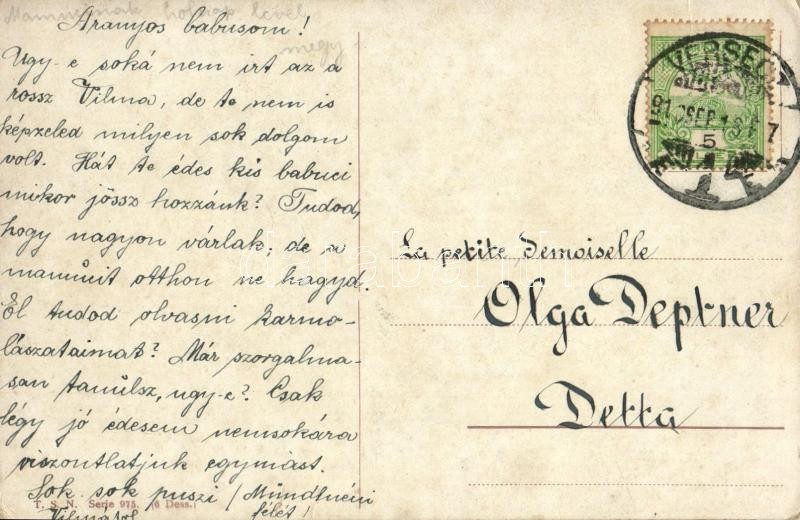 Mammának holnap levél
megy
Aranyos babusom!
Ugy-e soká nem irt az a
rossz Vilma, de te nem is
képzeled milyen sok dolgom
volt. Hát te édes kis babuci
mikor jössz hozzánk? Tudod,
hogy nagyon várlak; de a
mamucit otthon ne hagyd.
El tudod olvasni karmo-
lászataimat? Már szorgalma-
san tanulsz, ugy-e? Csak
légy jó édesem nemsokára
viszontlátjuk egymást.
Sok sok puszi
Vilmától
félét!
T. S. N. Serie 975. (6 Dess.)
VERSECZ
5
La petite Demoiselle
Olga Deptner
Detta